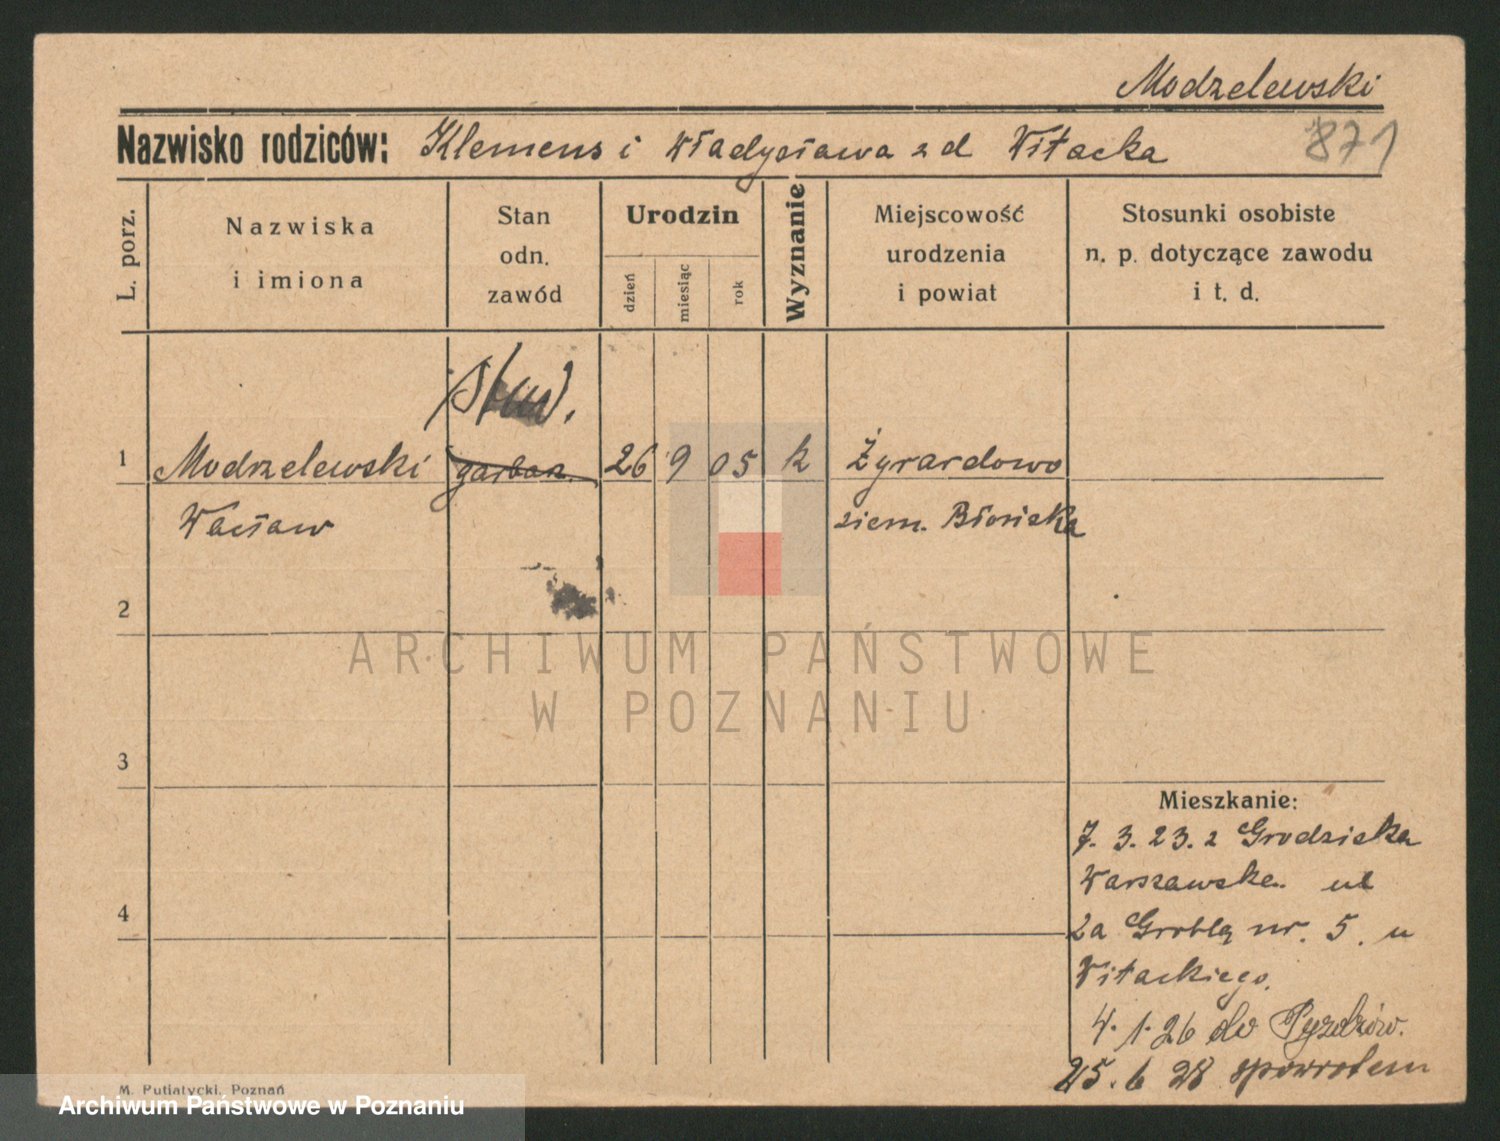 Modzelewski
Nazwisko rodziców: Klemens i Władysława z d Witacka
871
L. porz.
Nazwiska
i imiona
Stan
odn.
zawód
Urodzin
dzień
miesiąc
rok
Wyznanie
Miejscowość
urodzenia
i powiat
Stosunki osobiste
n. p. dotyczące zawodu
i t. d.
stud.
1 Modrzelewski garbar. 26 9 05 k Żyrardowo
Wacław ziem. Błońska
2
3
4
Mieszkanie:
7. 3. 23. z Grodziska
Warszawska ul
Za Groblą nr. 5. u
Witackiego.
4. 1. 26 do Pyzdrów.
25. 6 28 spowrotem
M. Putiatycki, Poznań
ARCHIWUM PAŃSTWOWE
W POZNANIU
Archiwum Państwowe w Poznaniu